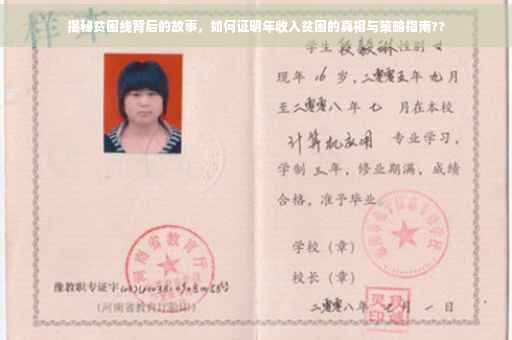 揭秘贫困线背后的故事，如何证明年收入贫困的真相与策略指南??
学生 段毅琳 性别 女
现年 16 岁，二零零五年 九月
至二零零八年 七 月在本校
计算机应用 专业学习，
学制 三 年，修业期满，成绩
合格，准予毕业
学校（章）
校长（章）
二零零八年 七 月 一 日
河南省教育厅
豫教职专证字
（河南省教育厅验印）